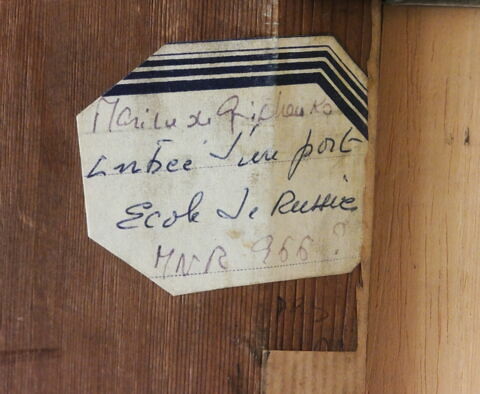 Marine de Gritchenko
Entrée d'un port
Ecole de Russie
MNR 966 ?